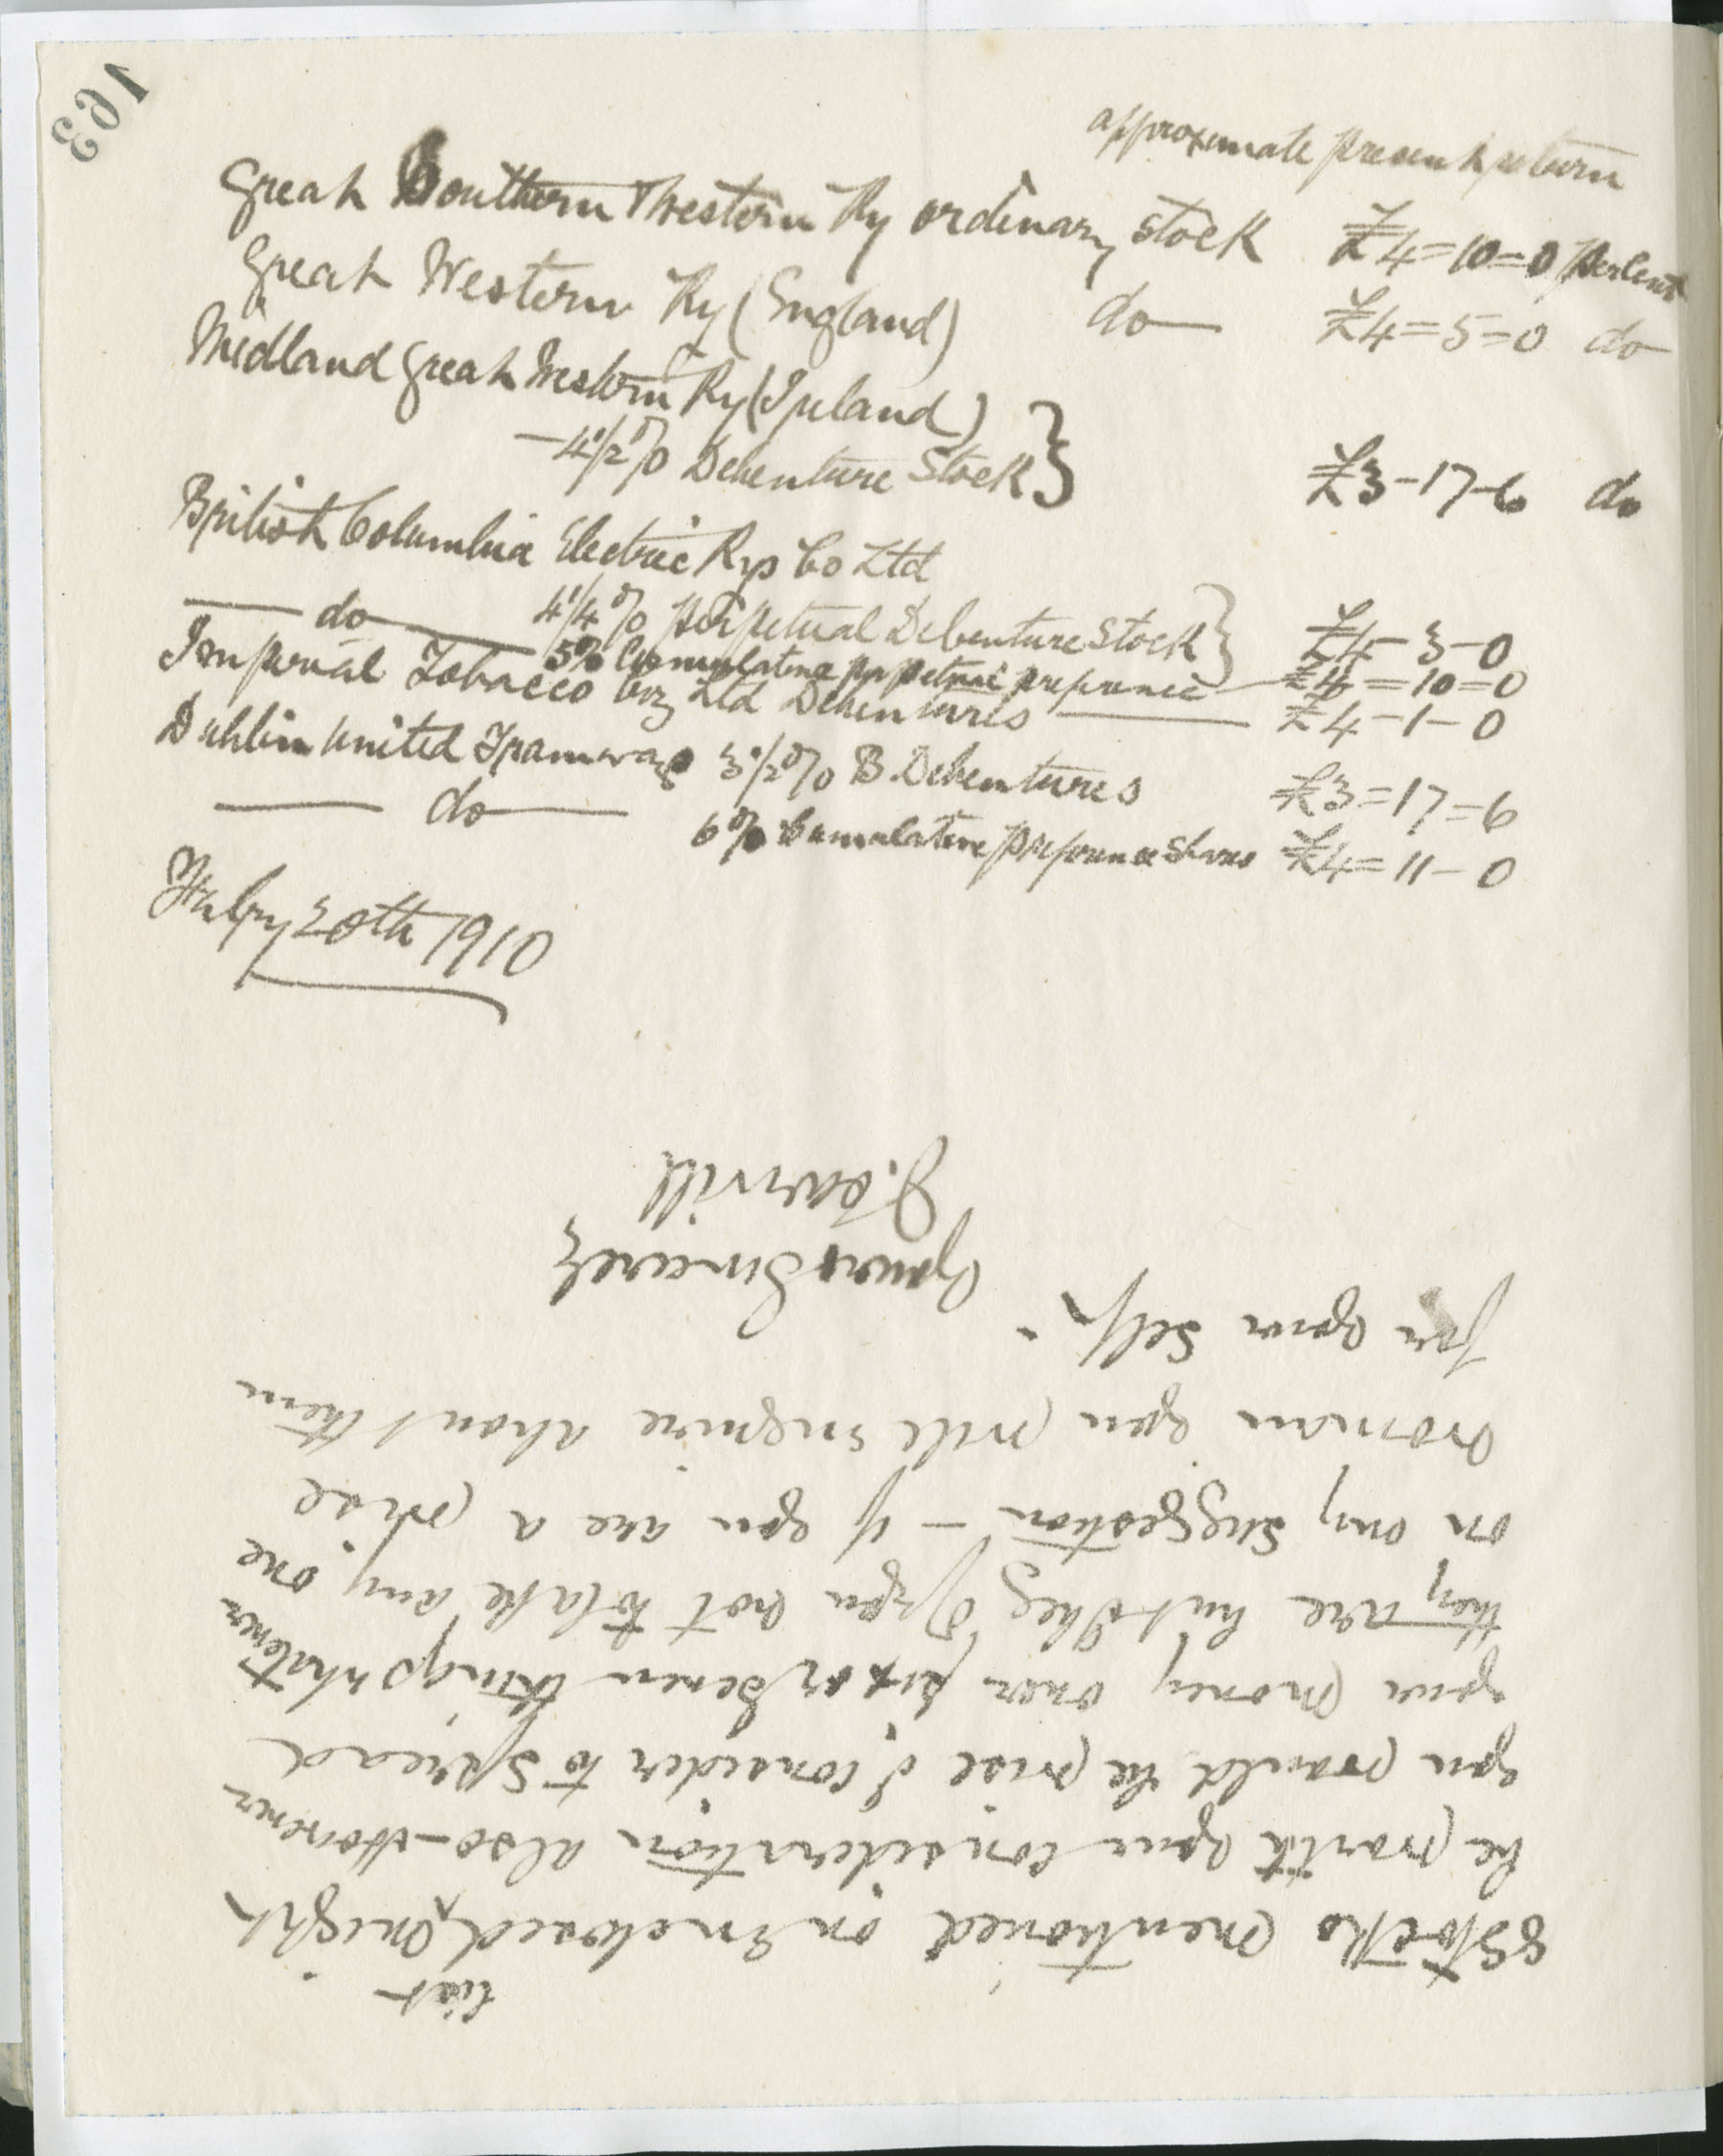 163
approximate present return
Great Southern & Western Ry ordinary stock £4=10=0 per Cent
Great Western Ry (England) do £4=5=0 do
Midland Great Western Ry (Ireland)
— 4 1/2 % Debenture Stock } £3-17-6 do
British Columbia Electric Rys Co Ltd
4 1/4 % Perpetual Debenture Stock } £4-3-0
— do — 5% Cumulative perpetual preference — £4=10=0
Imperial Tobacco Coy Ltd Debentures — £4-1-0
Dublin United Tramways 3 1/2 % B. Debentures £3=17=6
— do — 6% Cumulative preference Shares £4=11-0
Feby 20th 1910
list
8 Stocks mentioned on Enclosed ^ might
be worth your consideration also – However
you would be wise I consider to spread
your money over six or seven things whatever
they are but I beg of you not to take any one
on my suggestion – if you are a wise
woman you will enquire about them
for your self. -
Yours Sincerely